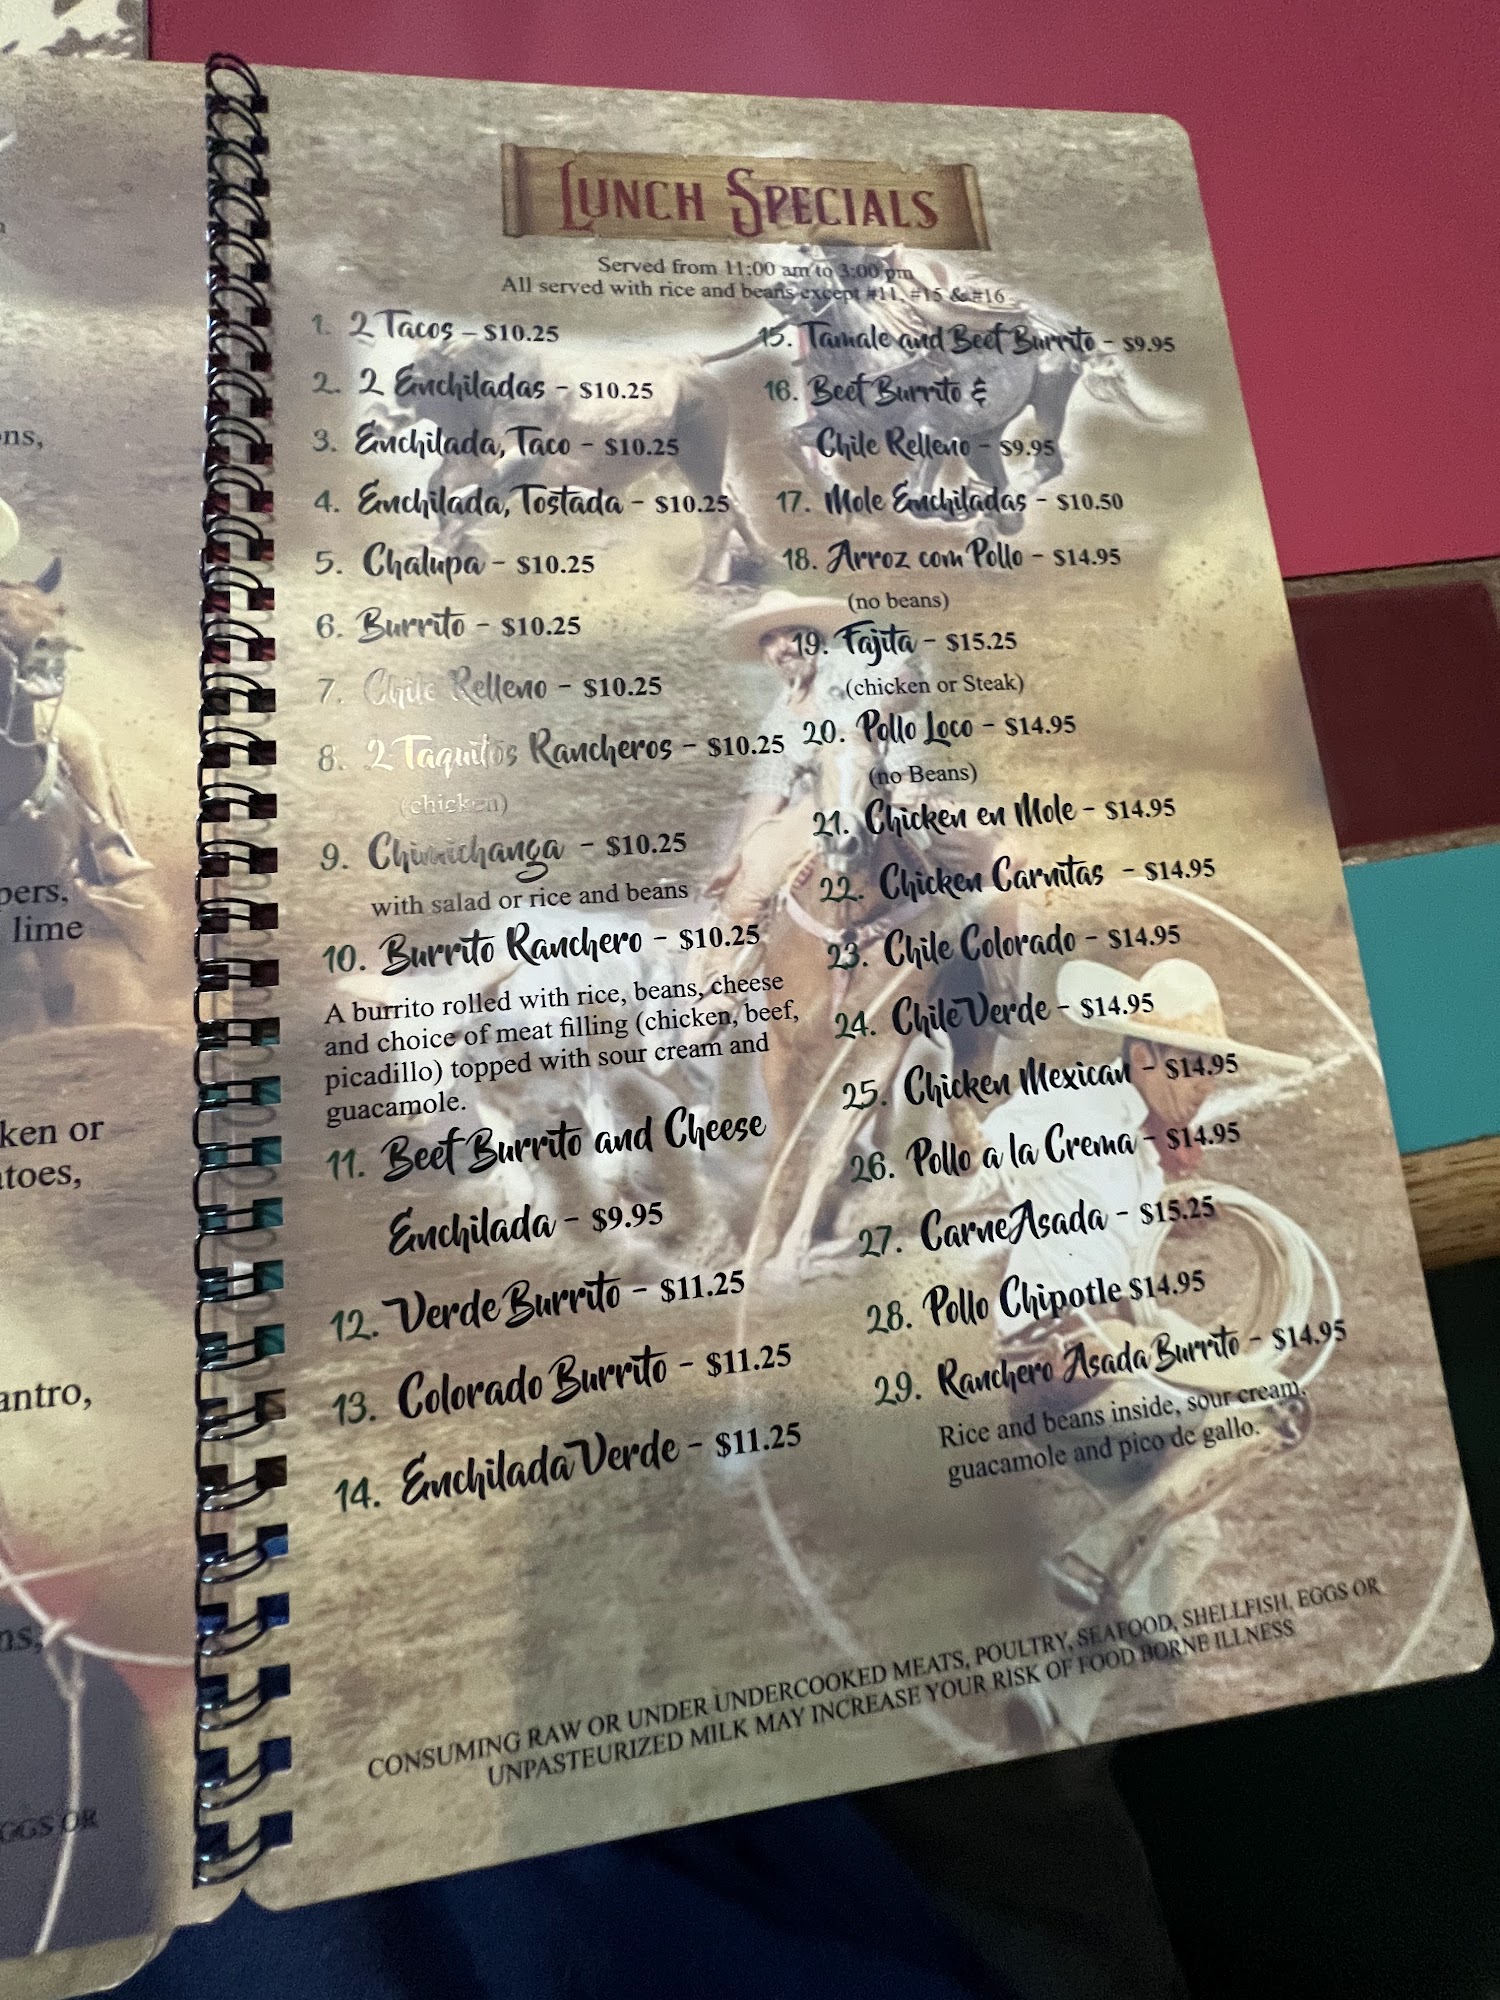 ons,
pers,
lime
ken or
atoes,
antro,
ns,
EGGS OR
LUNCH SPECIALS
Served from 11:00 am to 3:00 pm
All served with rice and beans except #11, #15 & #16
1. 2 Tacos – $10.25
2. 2 Enchiladas – $10.25
3. Enchilada, Taco – $10.25
4. Enchilada, Tostada – $10.25
5. Chalupa – $10.25
6. Burrito – $10.25
7. Chile Relleno – $10.25
8. 2 Taquitos Rancheros – $10.25
(chicken)
9. Chimichanga – $10.25
with salad or rice and beans
10. Burrito Ranchero – $10.25
A burrito rolled with rice, beans, cheese
and choice of meat filling (chicken, beef,
picadillo) topped with sour cream and
guacamole.
11. Beef Burrito and Cheese
Enchilada – $9.95
12. Verde Burrito – $11.25
13. Colorado Burrito – $11.25
14. Enchilada Verde – $11.25
15. Tamale and Beef Burrito – $9.95
16. Beef Burrito &
Chile Relleno – $9.95
17. Mole Enchiladas – $10.50
18. Arroz com Pollo – $14.95
(no beans)
19. Fajita – $15.25
(chicken or Steak)
20. Pollo Loco – $14.95
(no Beans)
21. Chicken en Mole – $14.95
22. Chicken Carnitas – $14.95
23. Chile Colorado – $14.95
24. Chile Verde – $14.95
25. Chicken Mexican – $14.95
26. Pollo a la Crema – $14.95
27. Carne Asada – $15.25
28. Pollo Chipotle $14.95
29. Ranchero Asada Burrito – $14.95
Rice and beans inside, sour cream,
guacamole and pico de gallo.
CONSUMING RAW OR UNDER UNDERCOOKED MEATS, POULTRY, SEAFOOD, SHELLFISH, EGGS OR
UNPASTEURIZED MILK MAY INCREASE YOUR RISK OF FOOD BORNE ILLNESS